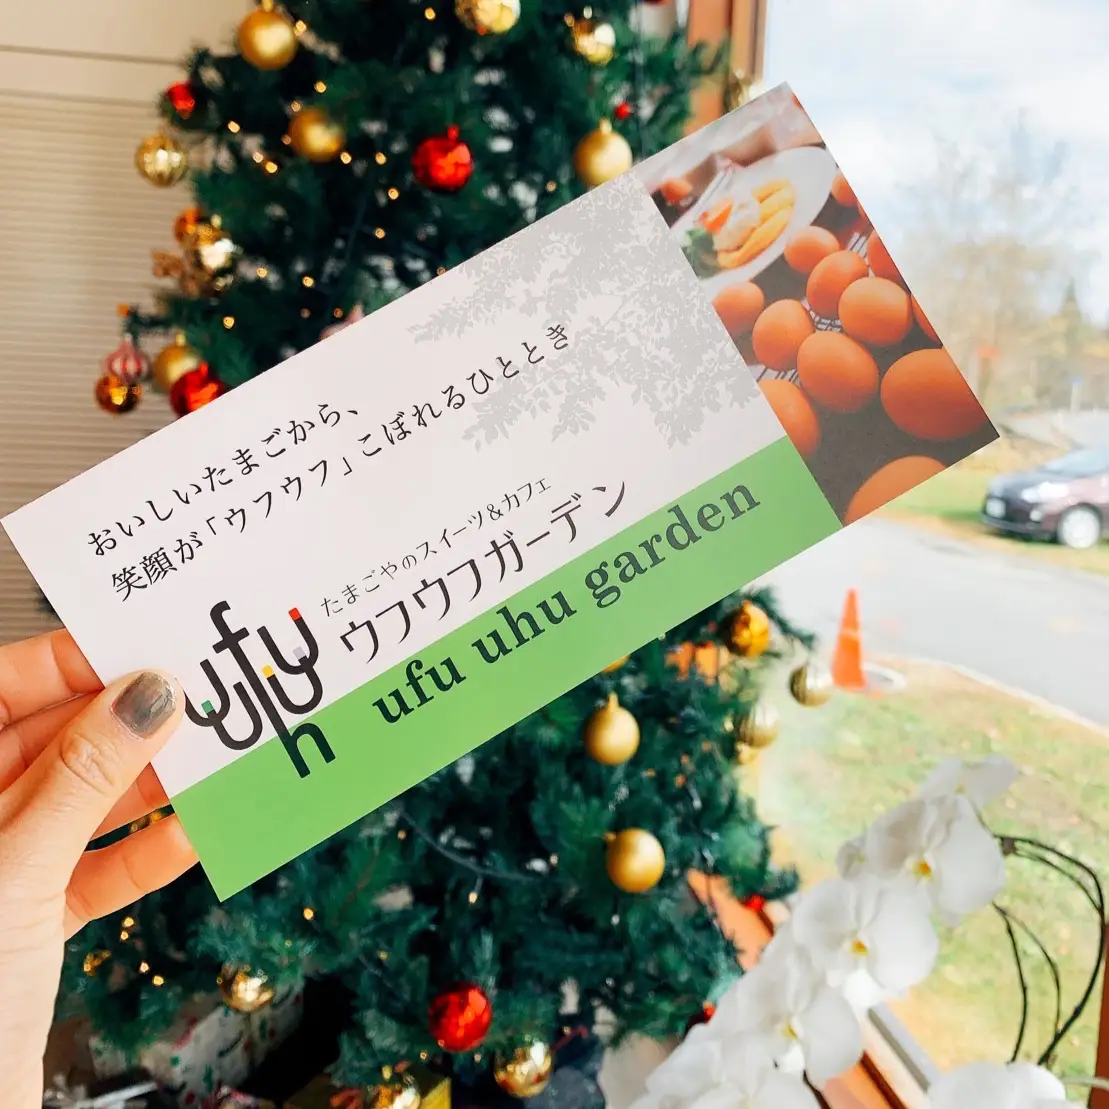 おいしいたまごから、
笑顔が「ウフウフ」こぼれるひととき
たまごやのスイーツ&カフェ
ウフウフガーデン
ufu uhu garden